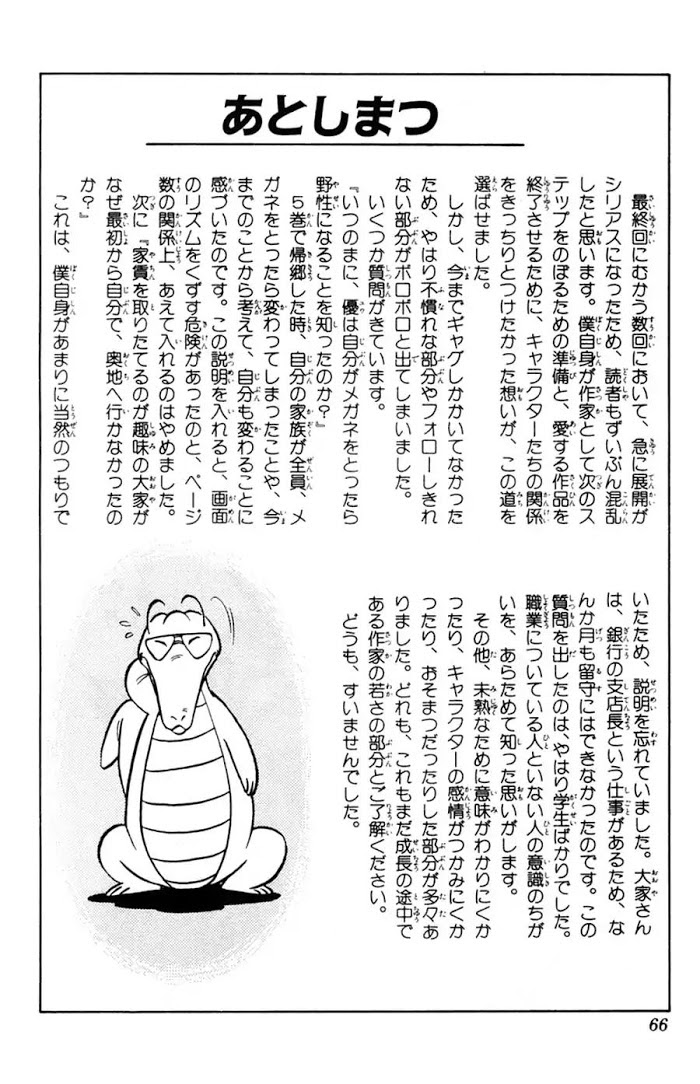 あとしまつ
　最終回にむかう数回において、急に展開が
シリアスになったため、読者もずいぶん混乱
したと思います。僕自身が作家として次のス
テップをのぼるための準備と、愛する作品を
終了させるために、キャラクターたちの関係
をきっちりとつけたかった想いが、この道を
選ばせました。
　しかし、今までギャグしかかいてなかった
ため、やはり不慣れな部分やフォローしきれ
ない部分がボロボロと出てしまいました。
　いくつか質問がきています。
『いつのまに、優は自分がメガネをとったら
野性になることを知ったのか？』
　５巻で帰郷した時、自分の家族が全員、メ
ガネをとったら変わってしまったことや、今
までのことから考えて、自分も変わることに
感づいたのです。この説明を入れると、画面
のリズムをくずす危険があったのと、ページ
数の関係上、あえて入れるのはやめました。
　次に『家賃を取りたてるのが趣味の大家が
なぜ最初から自分で、奥地へ行かなかったの
か？』
　これは、僕自身があまりに当然のつもりで
いたため、説明を忘れていました。大家さん
は、銀行の支店長という仕事があるため、な
んか月も留守にはできなかったのです。この
質問を出したのは、やはり学生ばかりでした。
職業についている人といない人の意識のちが
いを、あらためて知った思いがします。
　その他、未熟なために意味がわかりにくか
ったり、キャラクターの感情がつかみにくか
ったり、おそまつだったりした部分が多々あ
りました。どれも、これもまだ成長の途中で
ある作家の若さの部分とご了解ください。
　どうも、すいませんでした。
66